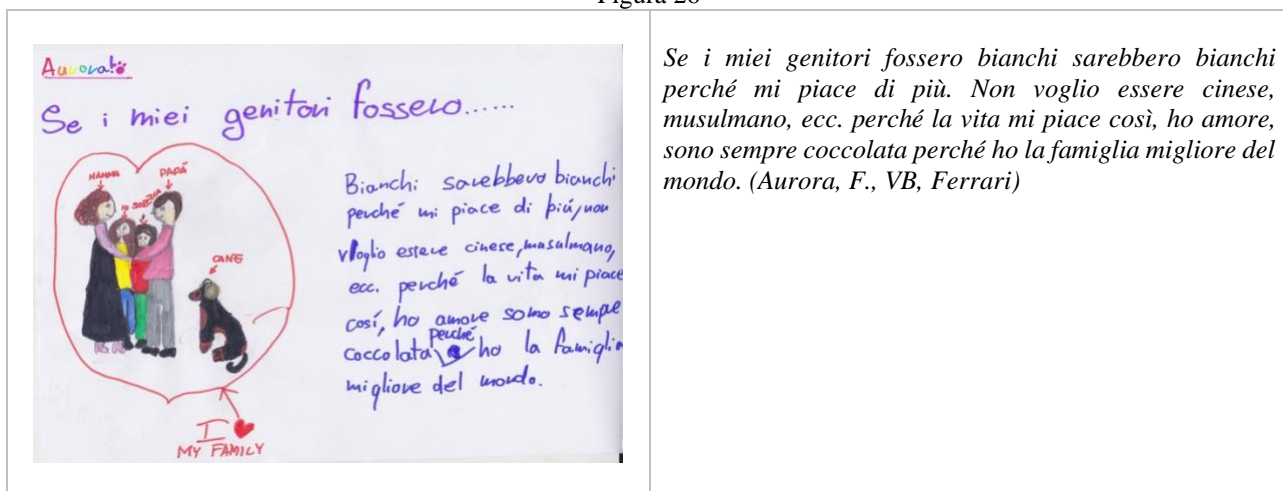 Figura 28
Aurora
Se i miei genitori fossero......
MAMMA
PAPÁ
IO
SORELLA
CANE
Bianchi sarebbero bianchi
perché mi piace di piú, non
voglio essere cinese, musulmano,
ecc. perché la vita mi piace
cosí, ho amore sono sempre
coccolata perché ho la famiglia
migliore del mondo.
I
MY FAMILY
Se i miei genitori fossero bianchi sarebbero bianchi
perché mi piace di più. Non voglio essere cinese,
musulmano, ecc. perché la vita mi piace così, ho amore,
sono sempre coccolata perché ho la famiglia migliore del
mondo. (Aurora, F., VB, Ferrari)